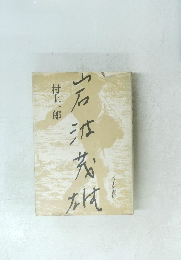 岩波茂雄
村上一郎